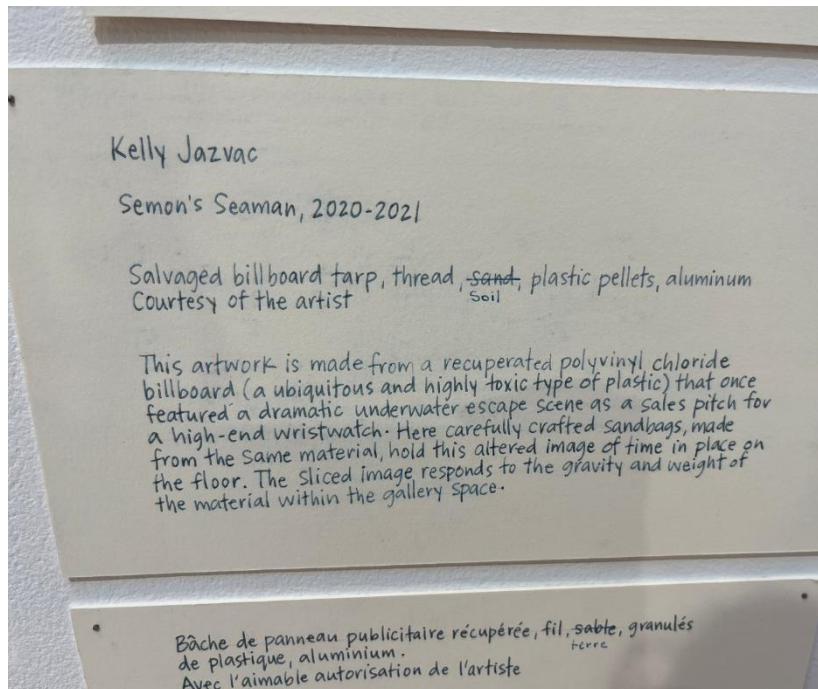 Kelly Jazvac
Semon's Seaman, 2020-2021
Salvaged billboard tarp, thread, sand, plastic pellets, aluminum
Soil
Courtesy of the artist
This artwork is made from a recuperated polyvinyl chloride
billboard (a ubiquitous and highly toxic type of plastic) that once
featured a dramatic underwater escape scene as a sales pitch for
a high-end wristwatch. Here carefully crafted sandbags, made
from the same material, hold this altered image of time in place on
the floor. The sliced image responds to the gravity and weight of
the material within the gallery space.
Bâche de panneau publicitaire récupérée, fil, sable, granulés
terre
de plastique, aluminium.
Avec l'aimable autorisation de l'artiste